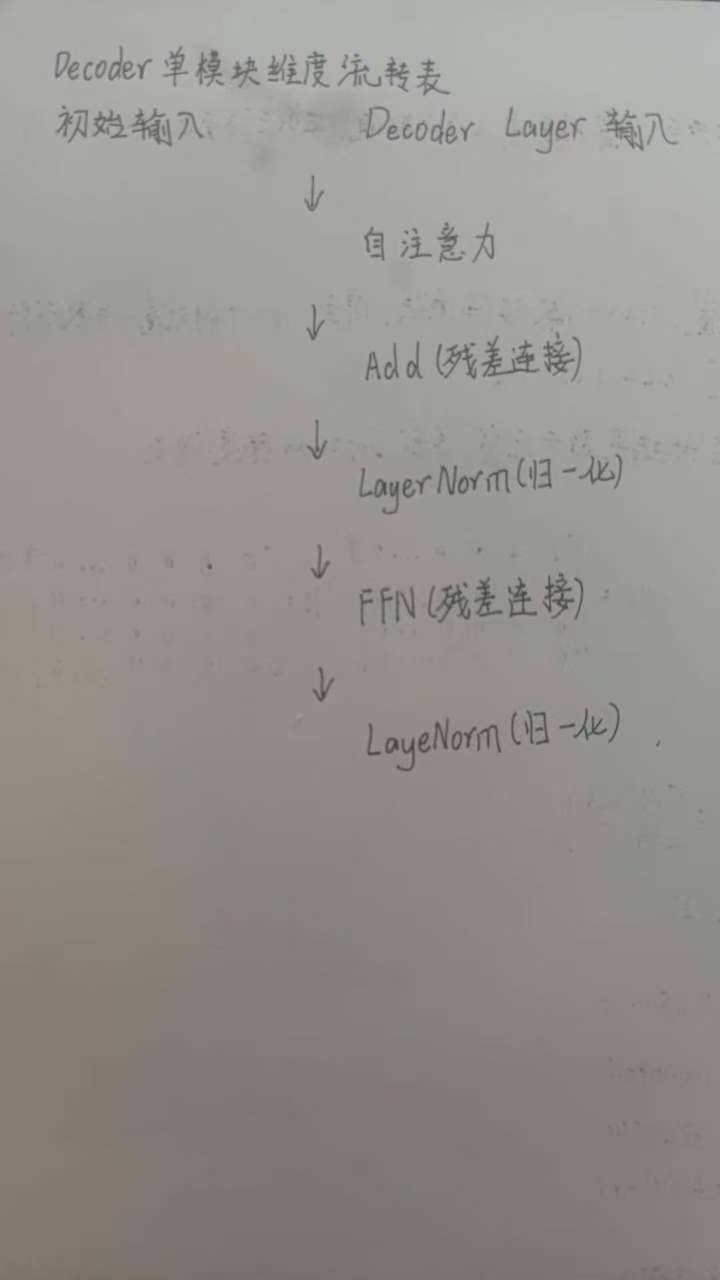 Decoder 单模块维度流转表
初始输入 Decoder Layer 输入
↓
自注意力
↓
Add (残差连接)
↓
LayerNorm (归一化)
↓
FFN (残差连接)
↓
LayeNorm (归一化)